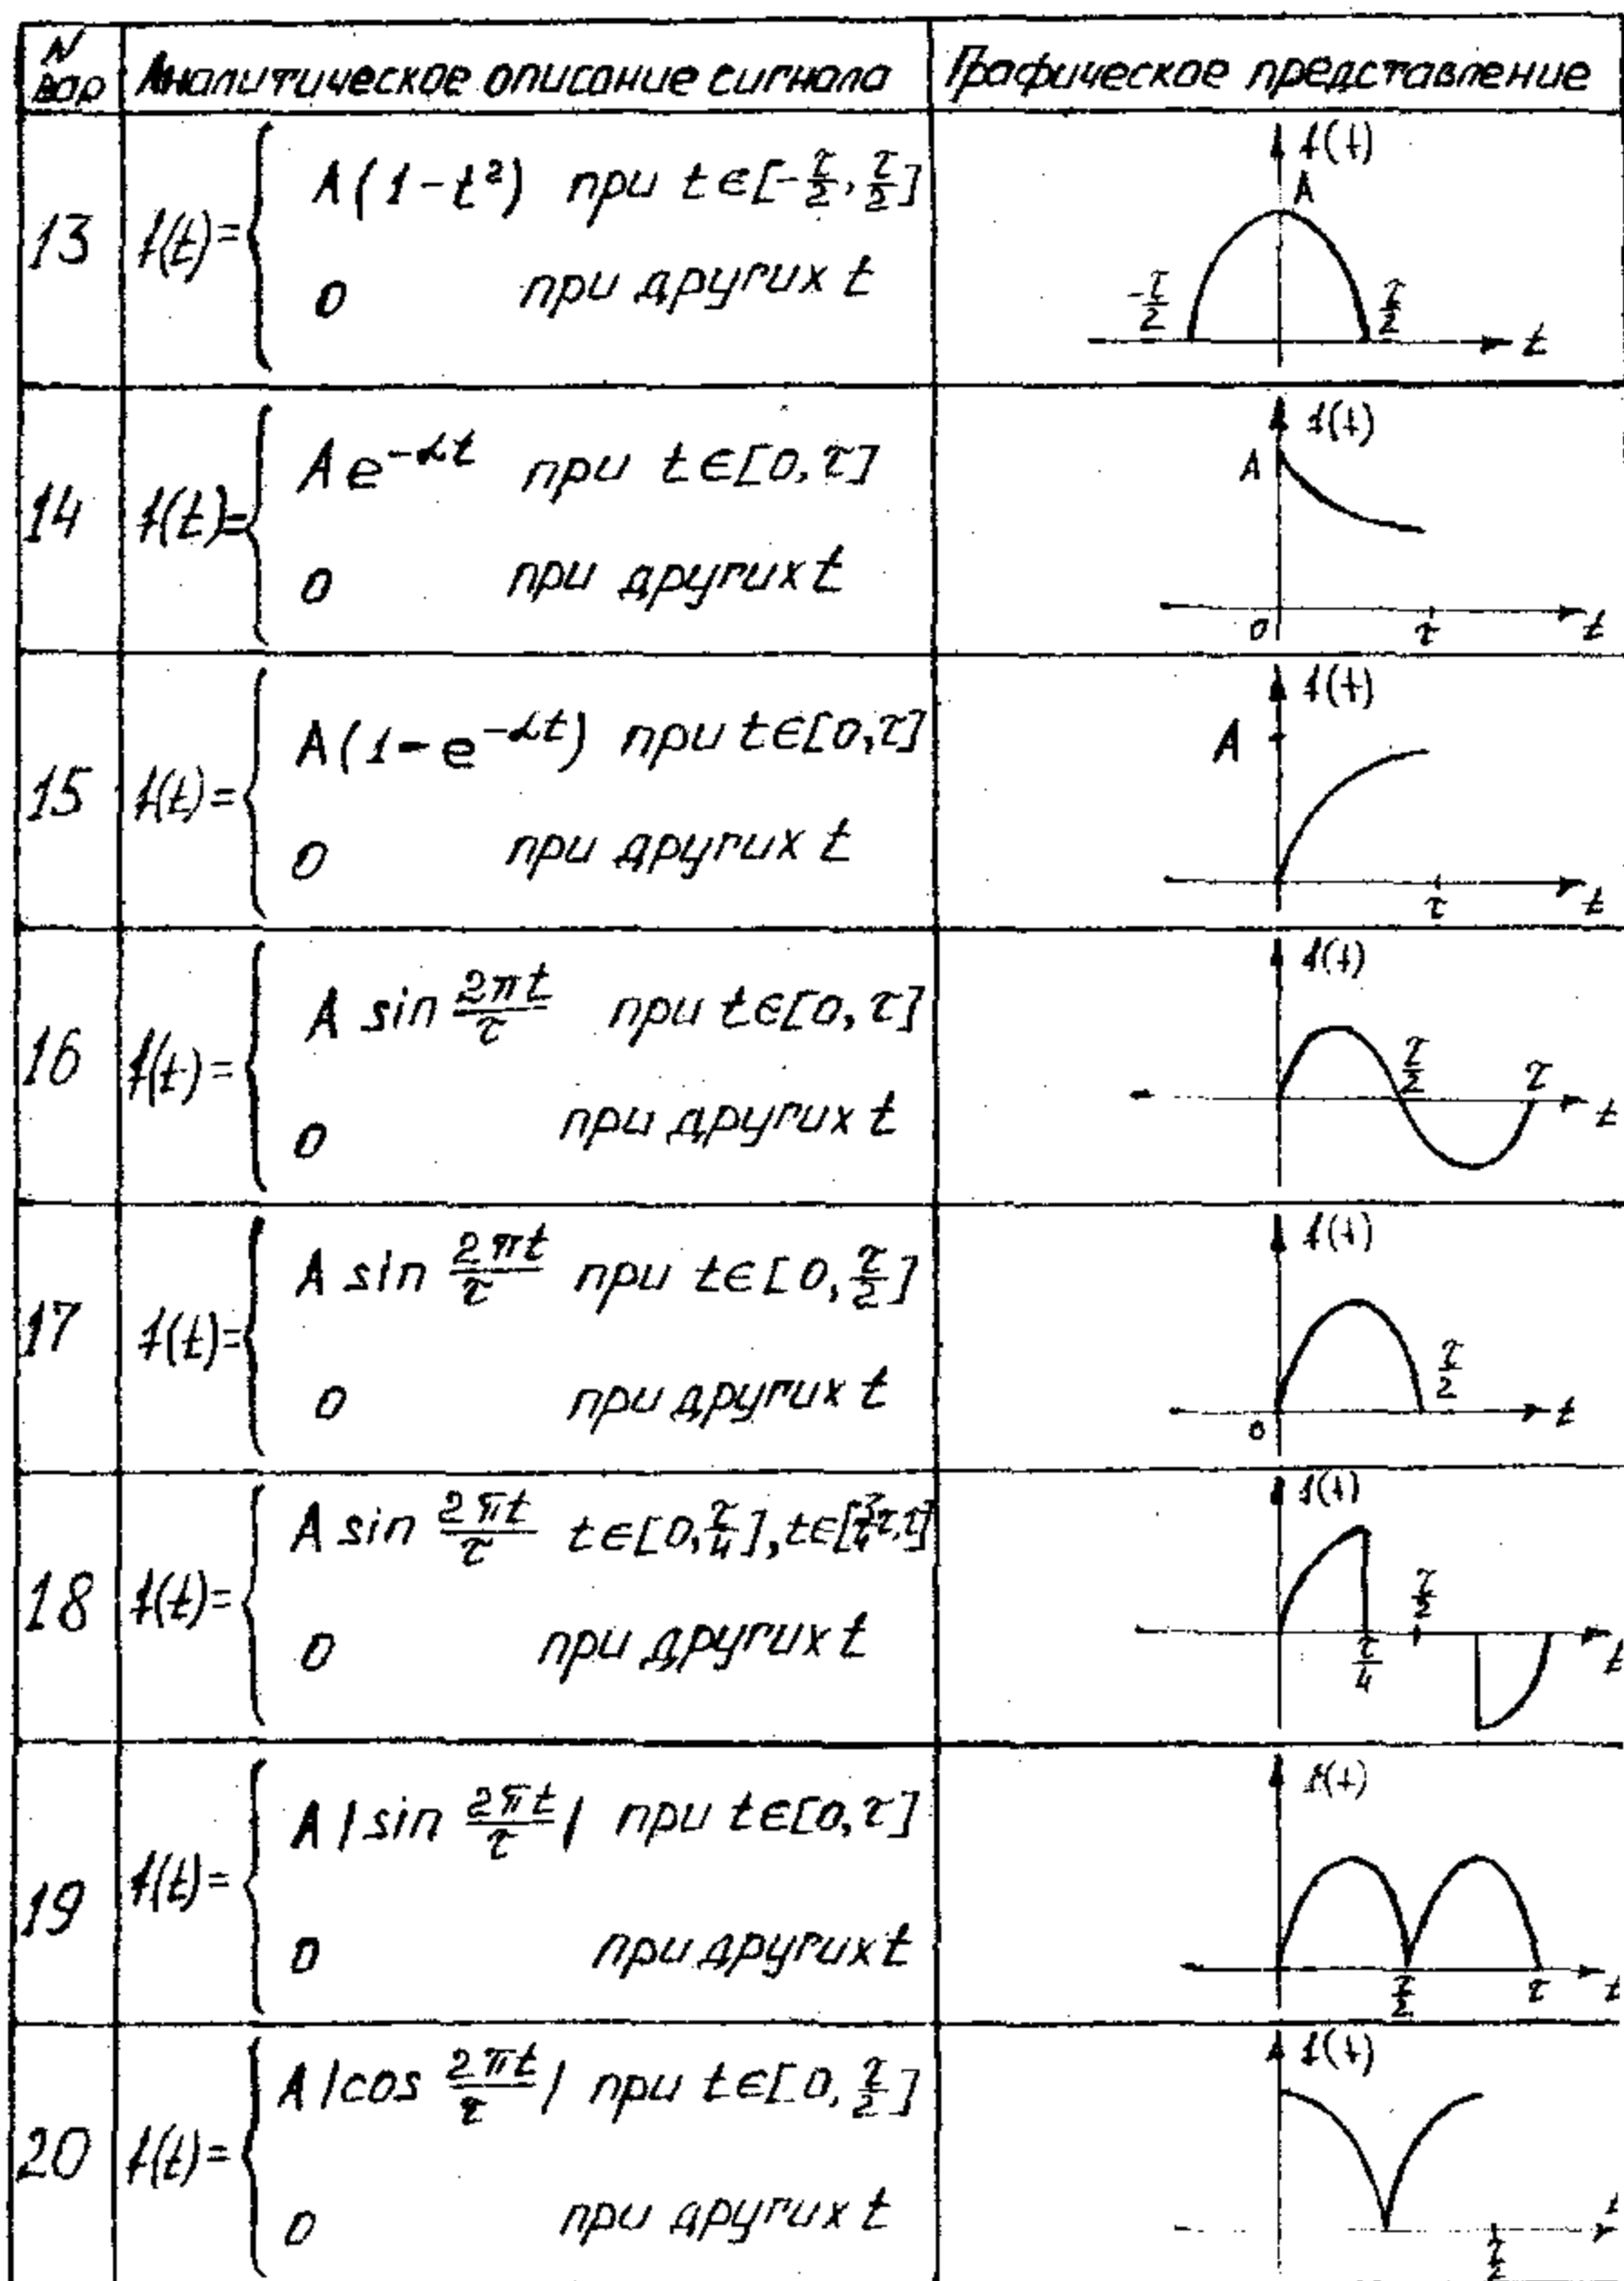 N вар Аналитическое описание сигнала Графическое представление
13 f(t)= { A(1-t²) при t∈[-τ/2, τ/2]
0 при других t
f(t) A -τ/2 τ/2 t
14 f(t)= { A e^{-αt} при t∈[0,τ]
0 при других t
f(t) A 0 τ t
15 f(t)= { A(1-e^{-αt}) при t∈[0,τ]
0 при других t
f(t) A τ t
16 f(t)= { A sin 2πt/τ при t∈[0,τ]
0 при других t
f(t) τ/2 τ t
17 f(t)= { A sin 2πt/τ при t∈[0,τ/2]
0 при других t
f(t) 0 τ/2 t
18 f(t)= { A sin 2πt/τ t∈[0,τ/4], t∈[3/4τ,τ]
0 при других t
f(t) τ/4 τ/2 t
19 f(t)= { A|sin 2πt/τ| при t∈[0,τ]
0 при других t
f(t) τ/2 τ t
20 f(t)= { A|cos 2πt/τ| при t∈[0,τ/2]
0 при других t
f(t) τ/2 t